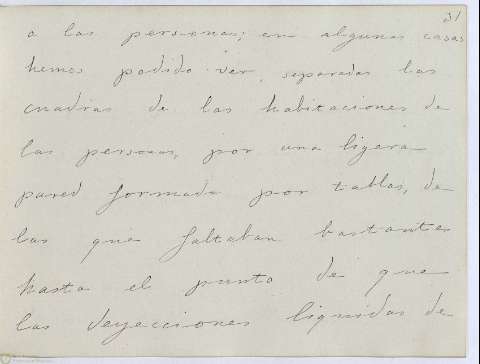 31
a las personas; en algunas casas
hemos podido ver, separadas las
cuadras de las habitaciones de
las personas, por una ligera
pared formada por tablas, de
las que faltaban bastantes
hasta el punto de que
las deyecciones liquidas de